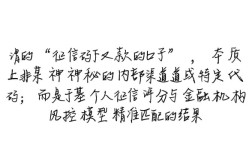 谓的“征信巧下款的口子”，本质
上非某神神秘的内部渠道道或特定代
码；而是于基个人征信评分与金融机构
风控模型精准匹配的结果